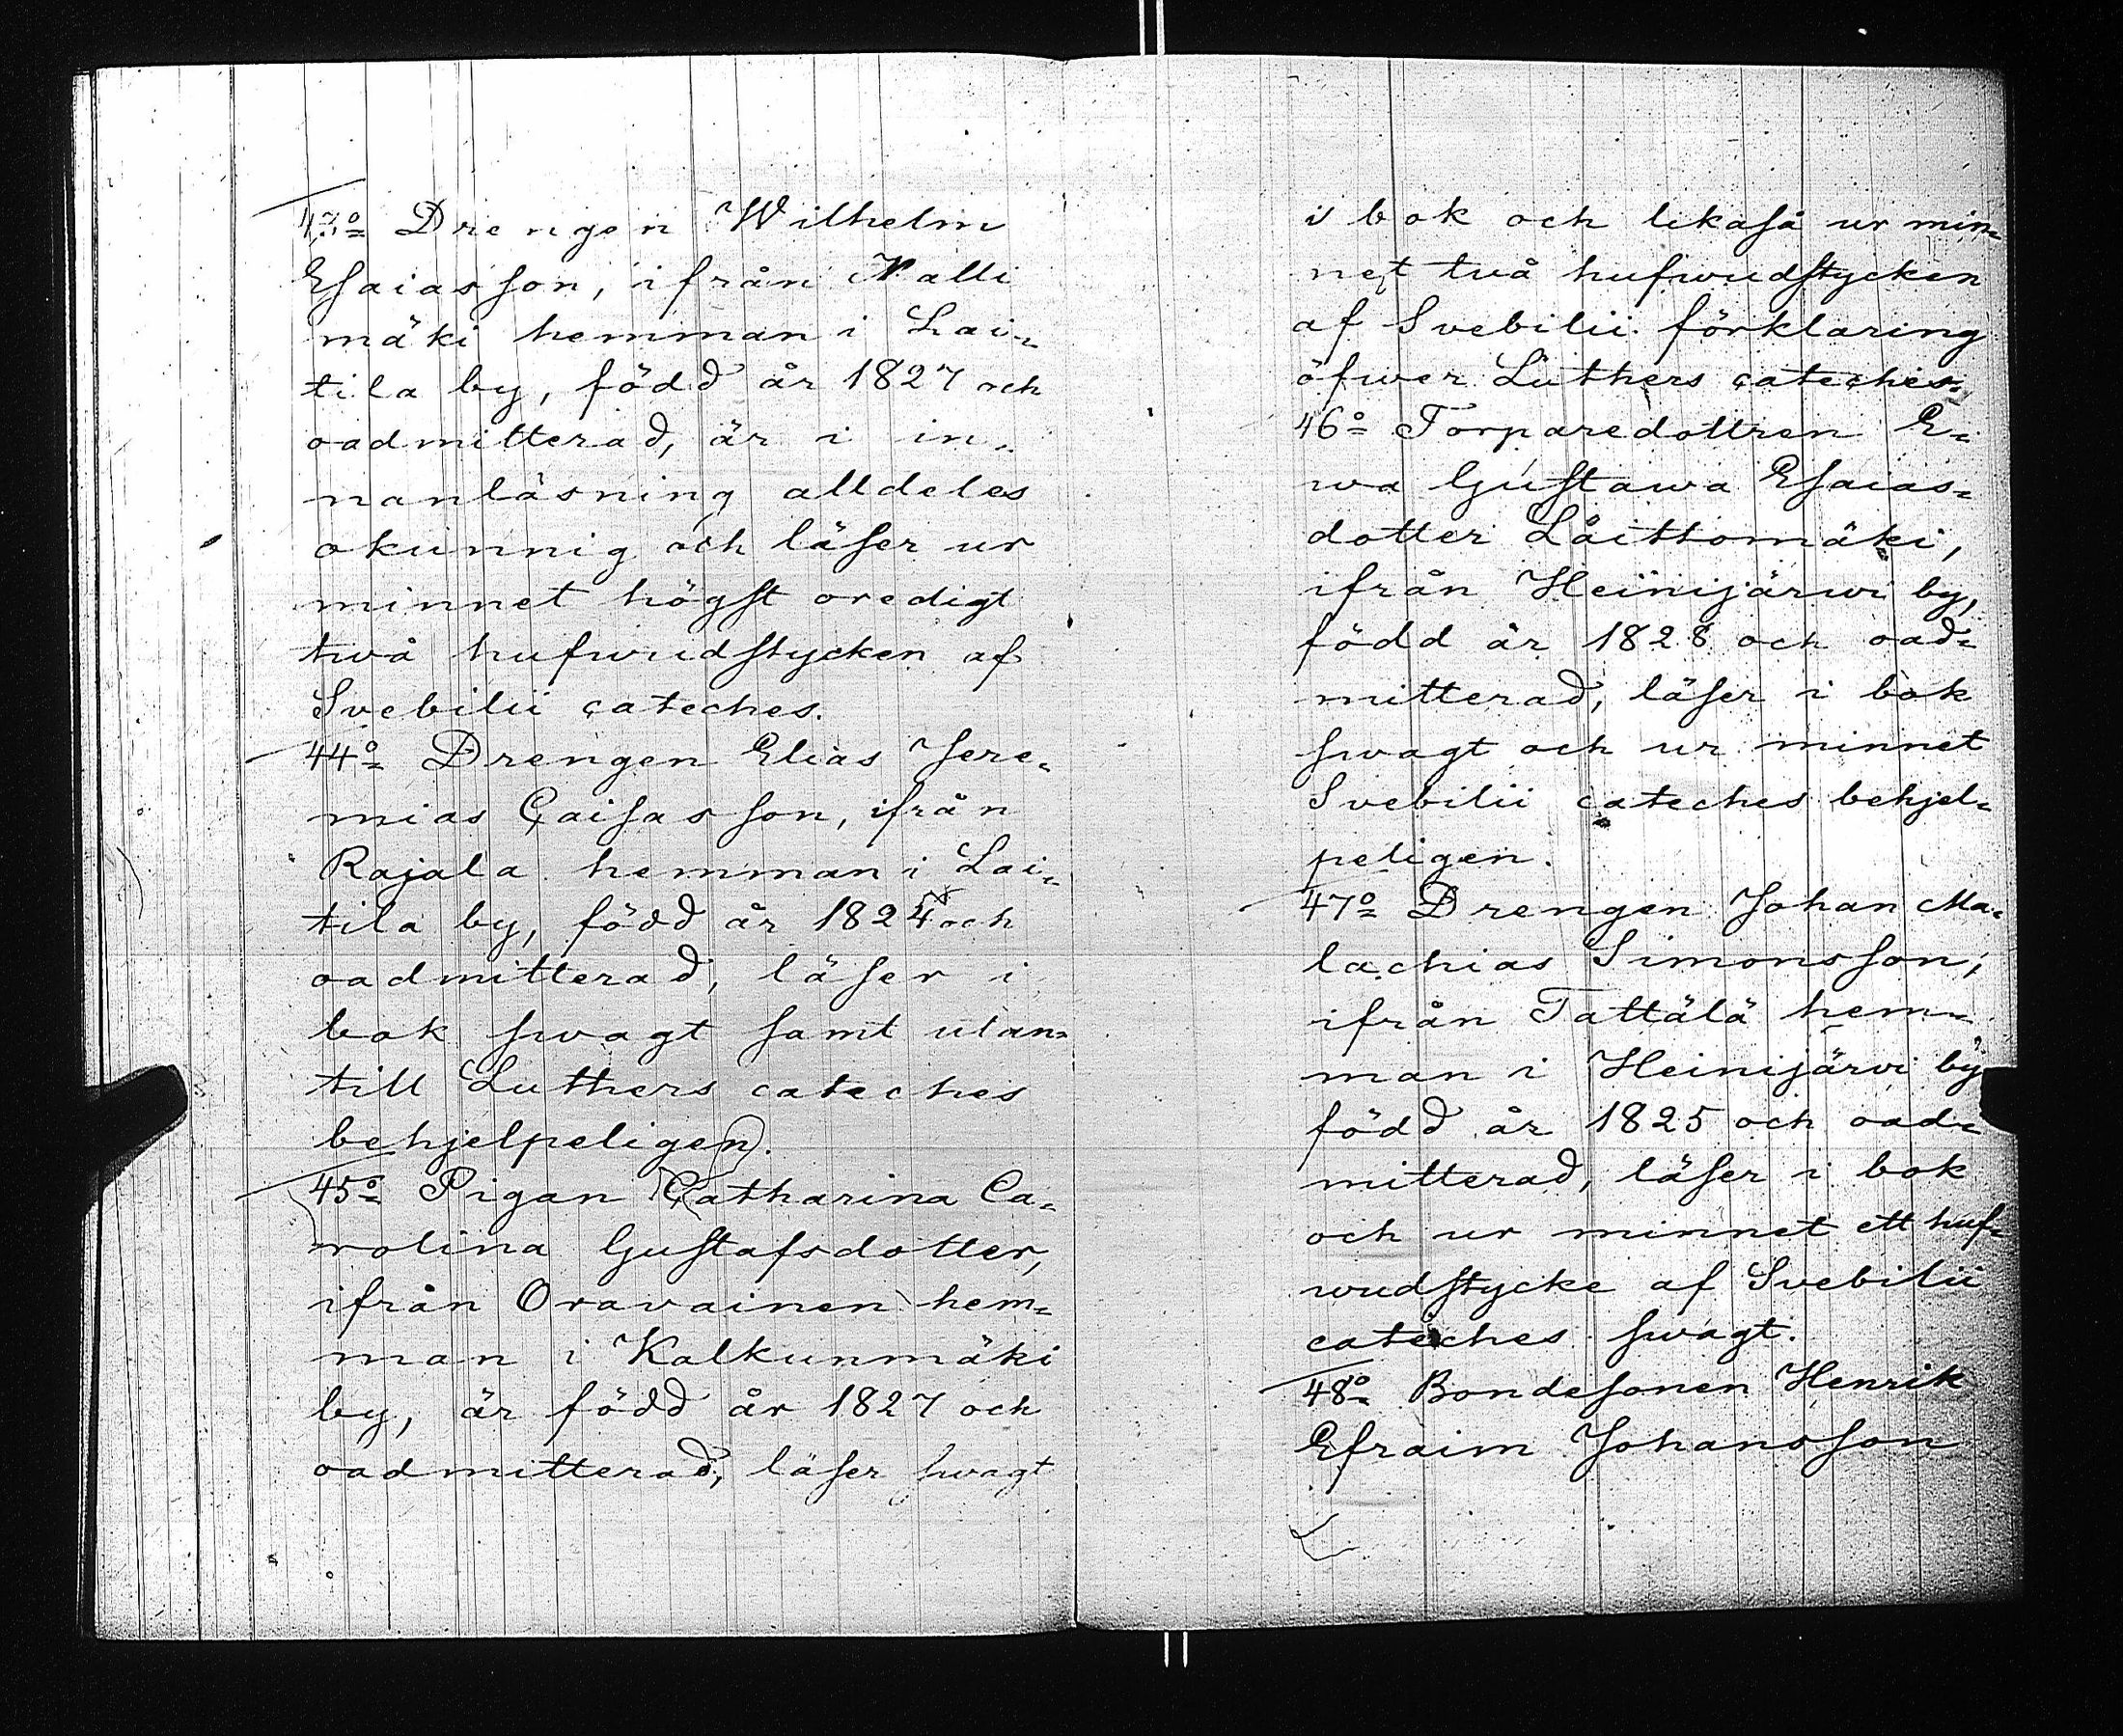 43º Drengen Wilhelm
Esaiasson, ifrån Nalli
mäki hemman i Lai-
tila by, född år 1827 och
oadmitterad, är i in-
nanläsning alldeles
okunnig och läser ur
minnet högst oredigt
två hufwudstycken af
Svebilii cateches.
44º Drengen Elias Jere-
mias Caisasson, ifrån
Rajala hemman i Lai-
tila by, född år 1824 och
oadmitterad, läser i
bok swagt samt utan-
till Luthers cateches
behjelpeligen.
45º Pigan Catharina Ca-
rolina Gustafsdotter,
ifrån Oravainen hem-
man i Kalkunmäki
by, är född år 1827 och
oadmitterad, läser swagt
i bok och likaså ur min-
net två hufwudstycken
af Svebilii förklaring
öfwer Luthers cateches.
46º Torparedottren E-
wa Gustawa Esaias-
dotter Låittomäki,
ifrån Heinijärwi by,
född år 1828 och oad-
mitterad, läser i bok
swagt och ur minnet
Svebilii cateches behjel-
peligen.
47º Drengen Johan Ma-
lachias Simonsson,
ifrån Tattälä hem-
man i Heinijärvi by
född år 1825 och oad-
mitterad, läser i bok
och ur minnet ett huf-
wudstycke af Svebilii
cateches swagt.
48º Bondesonen Henrik
Efraim Johansson